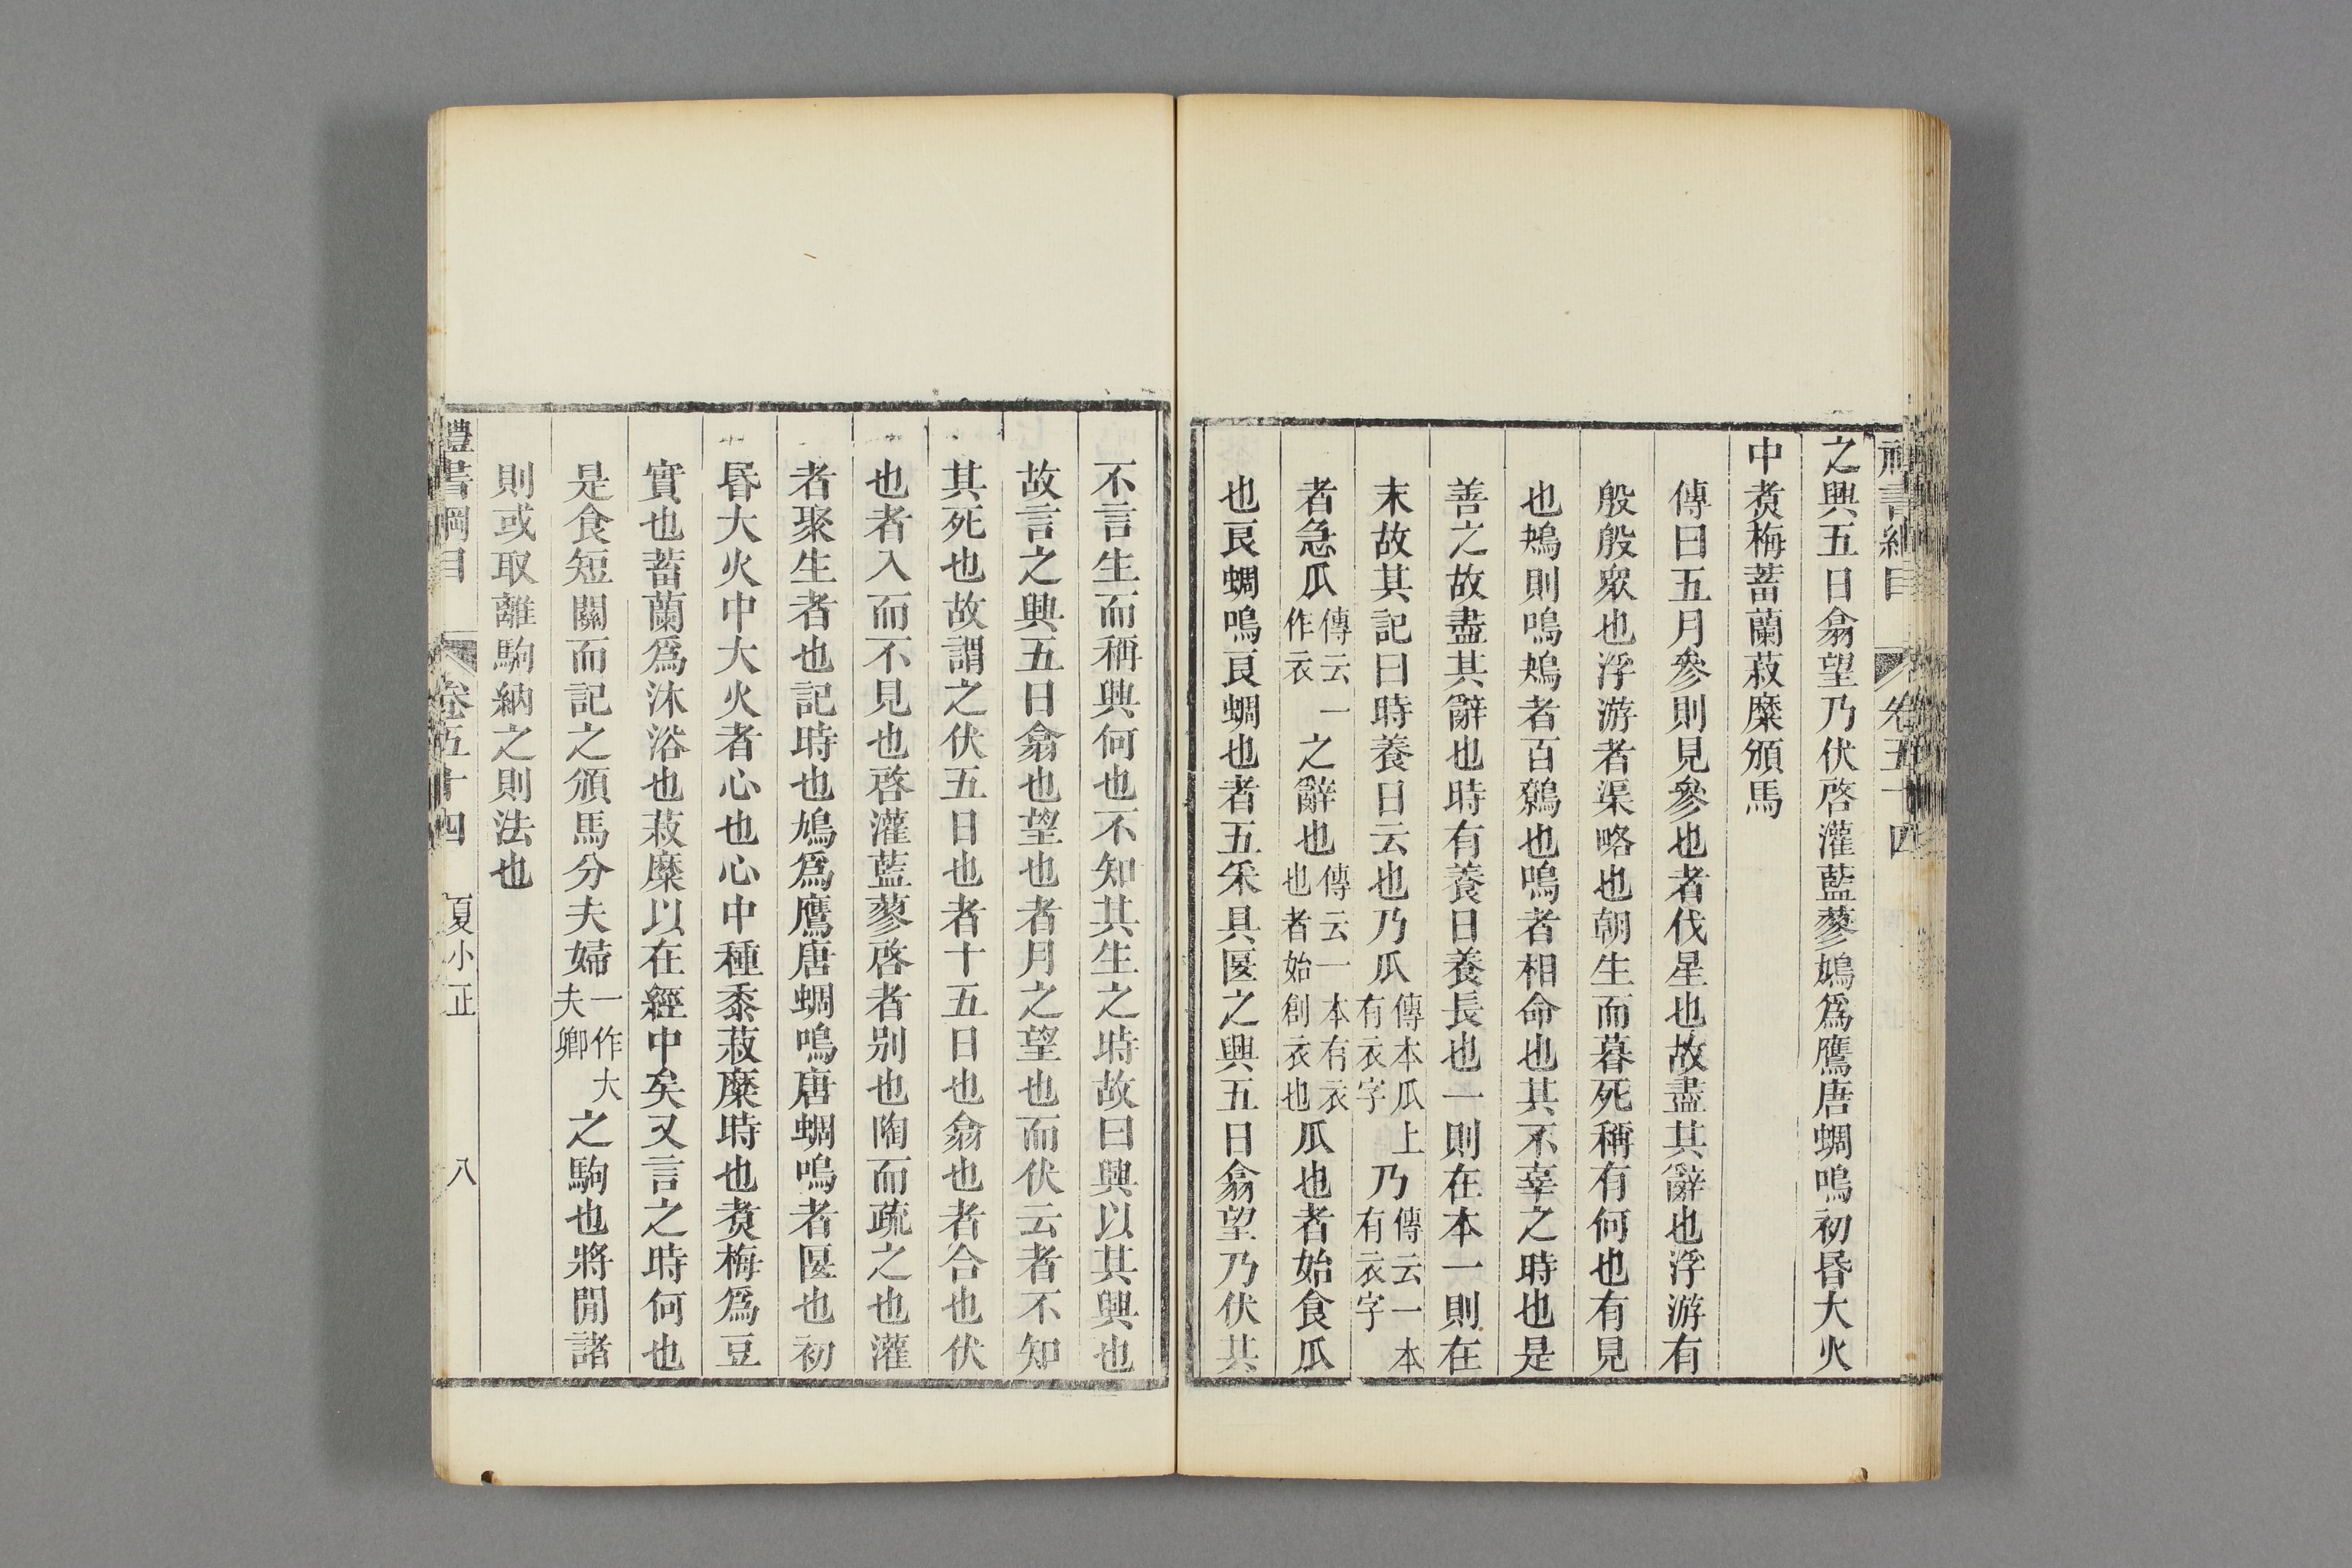 禮書綱目 卷五十四
之興五日翕望乃伏啓灌藍蓼鳩爲鷹唐蜩鳴初昬大火
中煑梅蓄蘭菽糜頒馬
傳曰五月參則見參也者伐星也故盡其辭也浮游有
殷殷衆也浮游者渠略也朝生而暮死稱有何也有見
也鴂則鳴鴂者百鷯也鳴者相命也其不辜之時也是
善之故盡其辭也時有養日養長也一則在本一則在
末故其記曰時養日云也乃瓜傳本瓜上有衣字乃傳云一本有衣字
者急瓜傳云一作衣之辭也傳云一本有衣也者始創衣也瓜也者始食瓜
也良蜩鳴良蜩也者五采具匽之興五日翕望乃伏其
不言生而稱興何也不知其生之時故曰興以其興也
故言之興五日翕也望也者月之望也而伏云者不知
其死也故謂之伏五日也者十五日也翕也者合也伏
也者入而不見也啓灌藍蓼啓者别也陶而疏之也灌
者聚生者也記時也鳩爲鷹唐蜩鳴唐蜩鳴者匽也初
昬大火中大火者心也心中種黍菽糜時也煑梅爲豆
實也蓄蘭爲沐浴也菽糜以在經中矣又言之時何也
是食短關而記之頒馬分夫婦一作大夫卿之駒也將閒諸
則或取離駒納之則法也
禮書綱目 卷五十四 夏小正 八